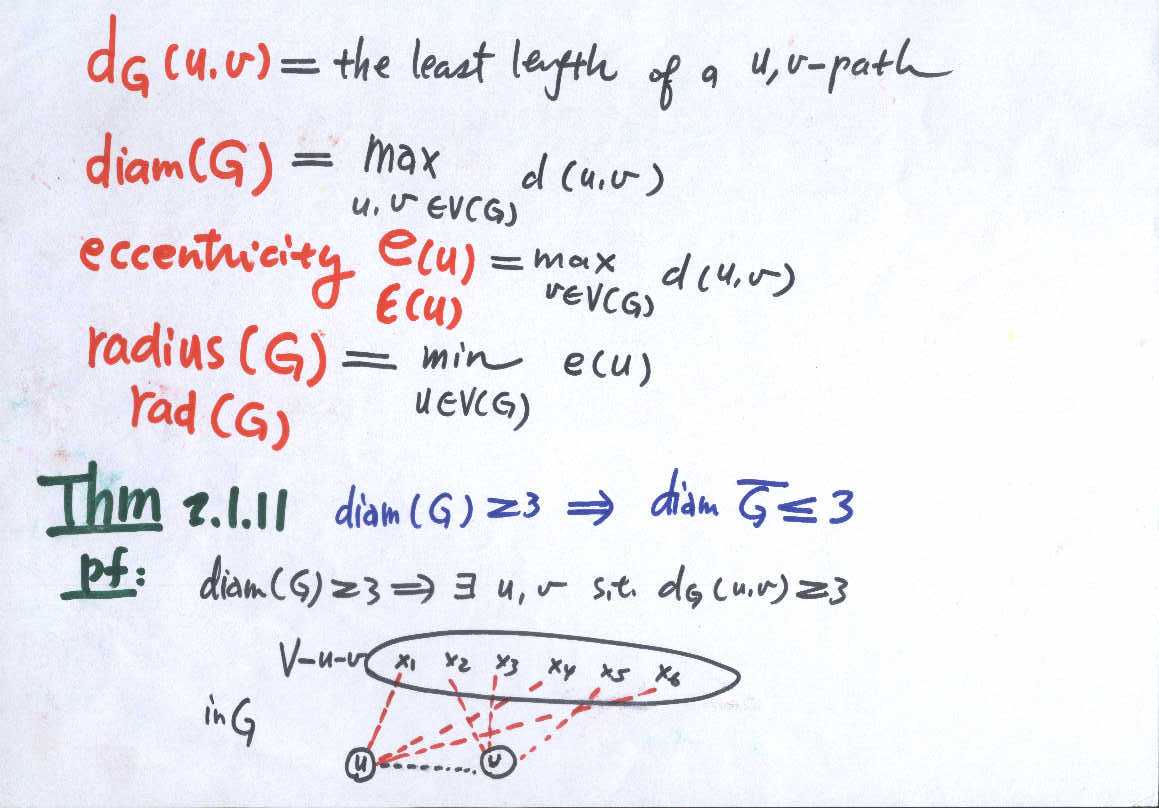 d_G(u,v) = the least length of a u,v-path
diam(G) = max_{u,v∈V(G)} d(u,v)
eccentricity e(u) = max_{v∈V(G)} d(u,v)
ϵ(u)
radius(G) = min_{u∈V(G)} e(u)
rad(G)
Thm 2.1.11 diam(G) ≥3 ⇒ diam G̅ ≤ 3
pf: diam(G) ≥3 ⇒ ∃ u, v s.t. d_G(u,v) ≥3
V-u-v x1 x2 x3 x4 x5 x6
in G
u v